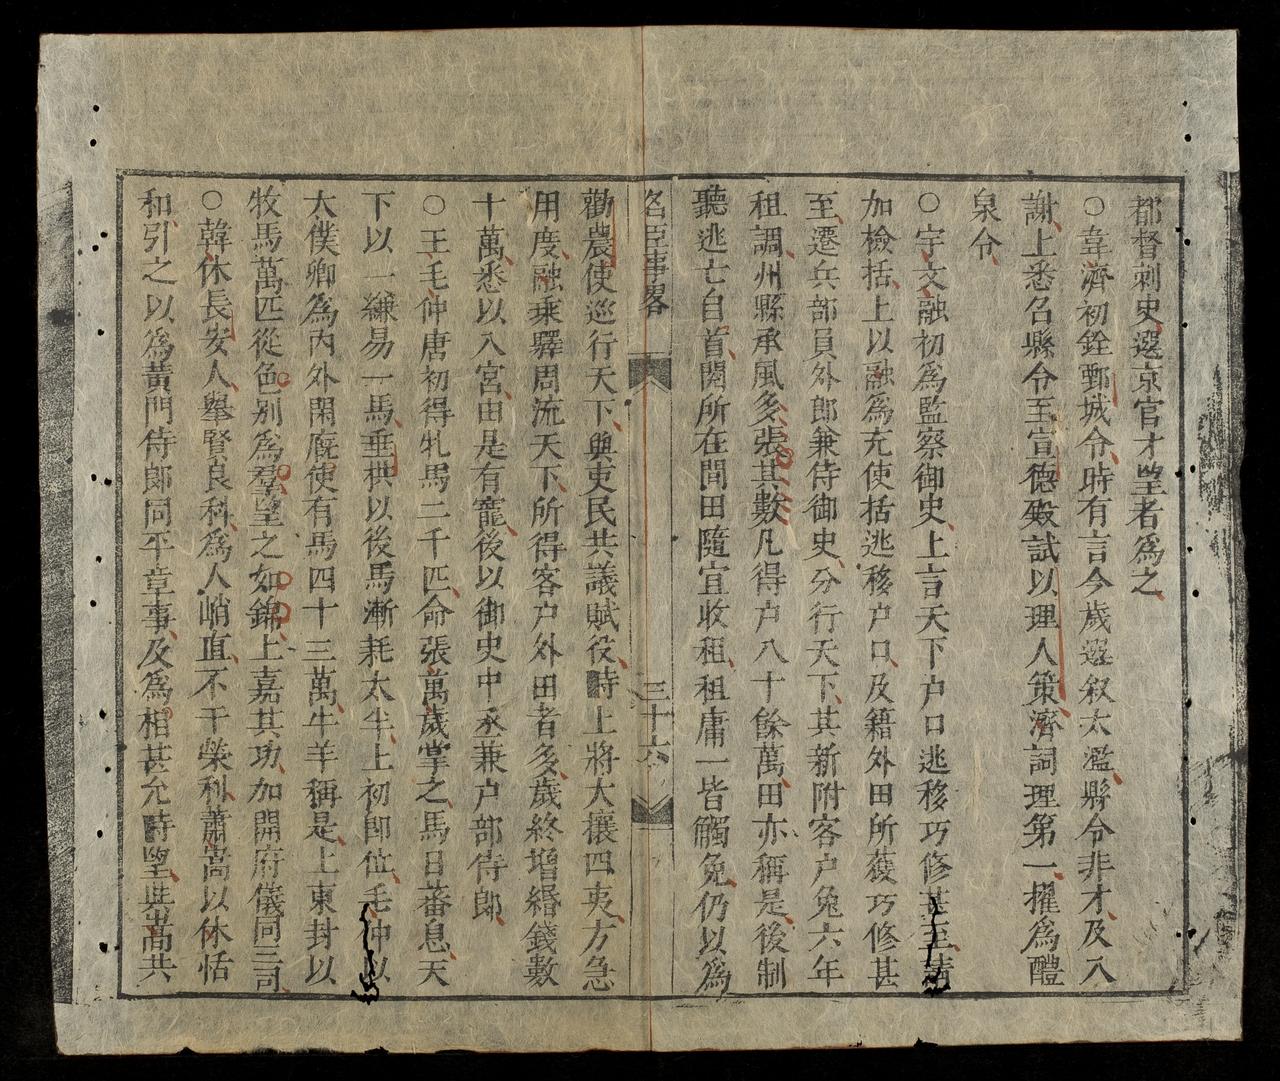 都督刺史選京官才望者爲之
○韋濟初銓鄄城令時有言今歲選叙太濫縣令非才及入
謝上悉名縣令至宣德殿試以理人策濟詞理第一擢爲醴
泉令
○宇文融初爲監察御史上言天下户口逃移巧修甚至請
加檢括上以融爲充使括逃移户口及籍外田所獲巧修甚
至遷兵部員外郎兼侍御史分行天下其新附客户免六年
租調州縣承風多張其數凡得户八十餘萬田亦稱是後制
聽逃亡自首闢所在閒田隨宜收租租庸一皆觸免仍以爲
名臣事畧 三十六
勸農使巡行天下與吏民共議賦役時上將大攘四夷方急
用度融乘驛周流天下所得客户外田者多歲終增緡錢數
十萬悉以入宮由是有寵後以御史中丞兼户部侍郎
○王毛仲唐初得牝馬二千匹命張萬歲掌之馬日蕃息天
下以一縑易一馬垂拱以後馬漸耗太半上初卽位毛仲以
太僕卿為內外閑廐使有馬四十三萬牛羊稱是上東封以
牧馬萬匹從色別爲羣望之如錦上嘉其功加開府儀同三司
○韓休長安人舉賢良科爲人峭直不干榮利蕭嵩以休恬
和引之以爲黃門侍郎同平章事及爲相甚允時望與嵩共